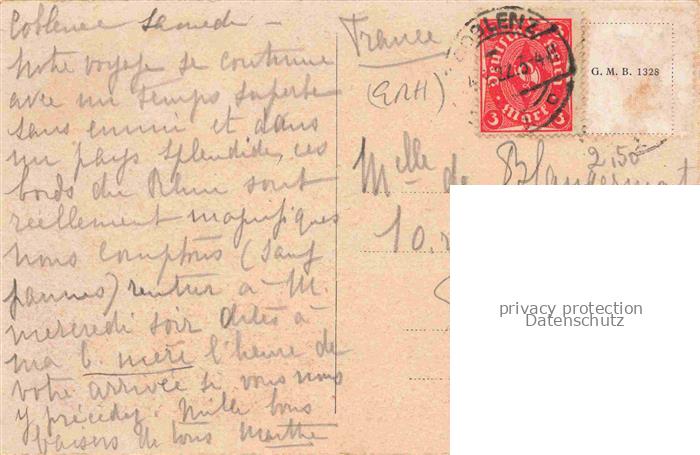 Coblence samedi -
Notre voyage se continue
avec un temps superbe
sans ennui et dans
un pays splendide, ces
bords du Rhin sont
réellement magnifiques
nous comptons (sauf
pannes) rentrer à M.
mercredi soir dites à
ma b. mère l'heure de
votre arrivée si vous nous
y précédez. Mille bons
baisers de tous Marthe
France
COBLENZ
Deutsches Reich
3 Mark 3
G. M. B. 1328
2,50
Melle de
10, r
privacy protection
Datenschutz